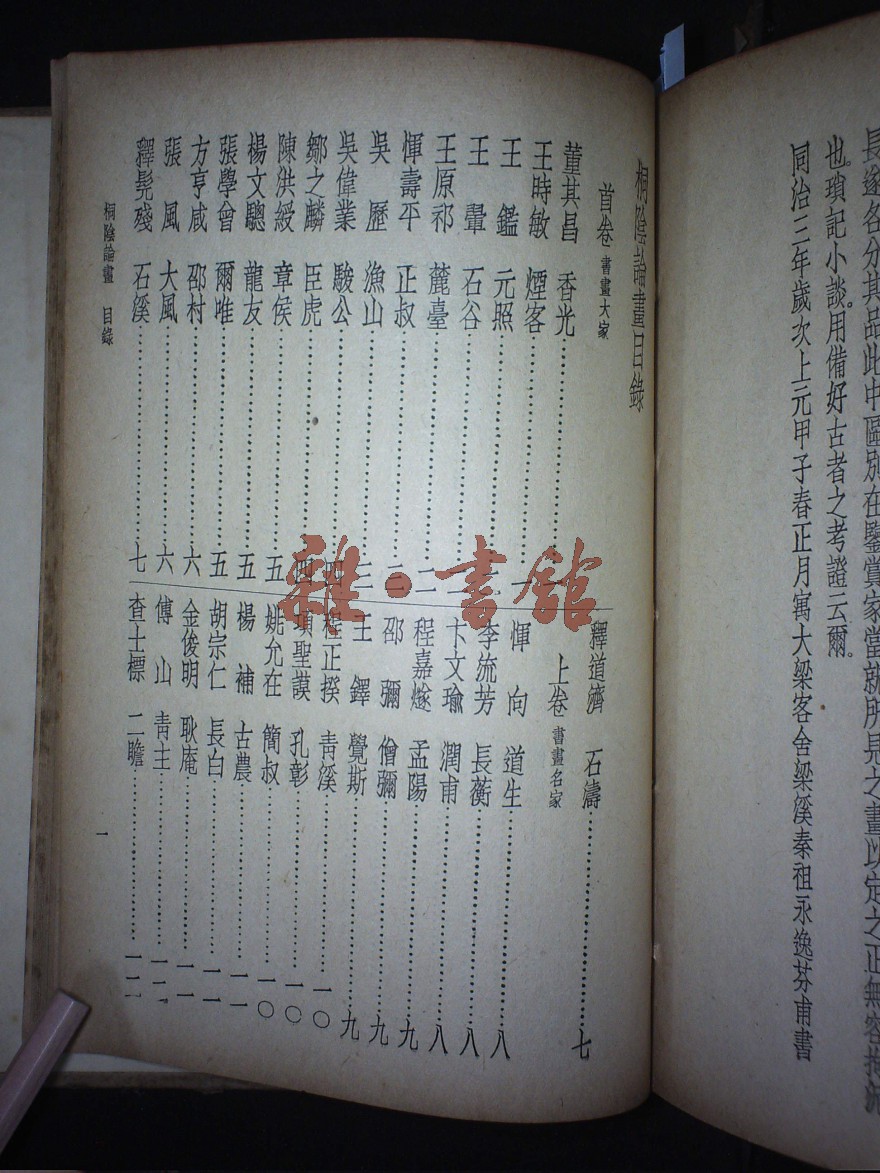 長遂各分其品此中區別在鑒賞家當就所見之畫以定之正無容拘泥
也。瑣記小談。用備好古者之考證云爾。
同治三年歲次上元甲子春正月寓大梁客舍梁溪秦祖永逸芬甫書
桐陰論畫目錄
首卷 書畫大家
董其昌 香光
王時敏 煙客
王鑑 元照 一
王翬 石谷
王原祁 麓臺 二
惲壽平 正叔 三
吳歷 漁山 三
吳偉業 駿公 四
鄒之麟 臣虎 四
陳洪綬 章侯 五
楊文驄 龍友 五
張學曾 爾唯 五
方亨咸 邵村 六
張風 大風 六
釋髡殘 石溪 七
釋道濟 石濤 七
上卷 書畫名家
惲向 道生 八
李流芳 長蘅 八
卞文瑜 潤甫 八
程嘉燧 孟陽 九
邵彌 僧彌 九
王鐸 覺斯 九
程正揆 青溪 一〇
項聖謨 孔彰 一〇
姚允在 簡叔 一〇
楊補 古農 一一
胡宗仁 長白 一一
金俊明 耿庵 一一
傅山 青主 一二
查士標 二瞻 一二
桐陰論畫 目錄
一
雜·書館